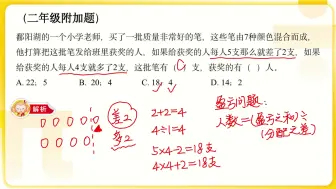 (二年级附加题)
鄱阳湖的一个小学老师，买了一批质量非常好的笔，这些笔由7种颜色混合而成，
他打算把这批笔发给班里获奖的人，如果给获奖的人每人5支那么就差了2支，如果
给获奖的人每人4支就多了2支，这批笔有（ ）支，获奖的有（ ）人。
A. 22；5 B. 20；4 C. 18；4 D. 14；2
解析
差2
多2
2+2=4
4÷1=4
5×4-2=18支
4×4+2=18支
盈亏问题：
人数=(盈亏之和)÷
(分配之差)